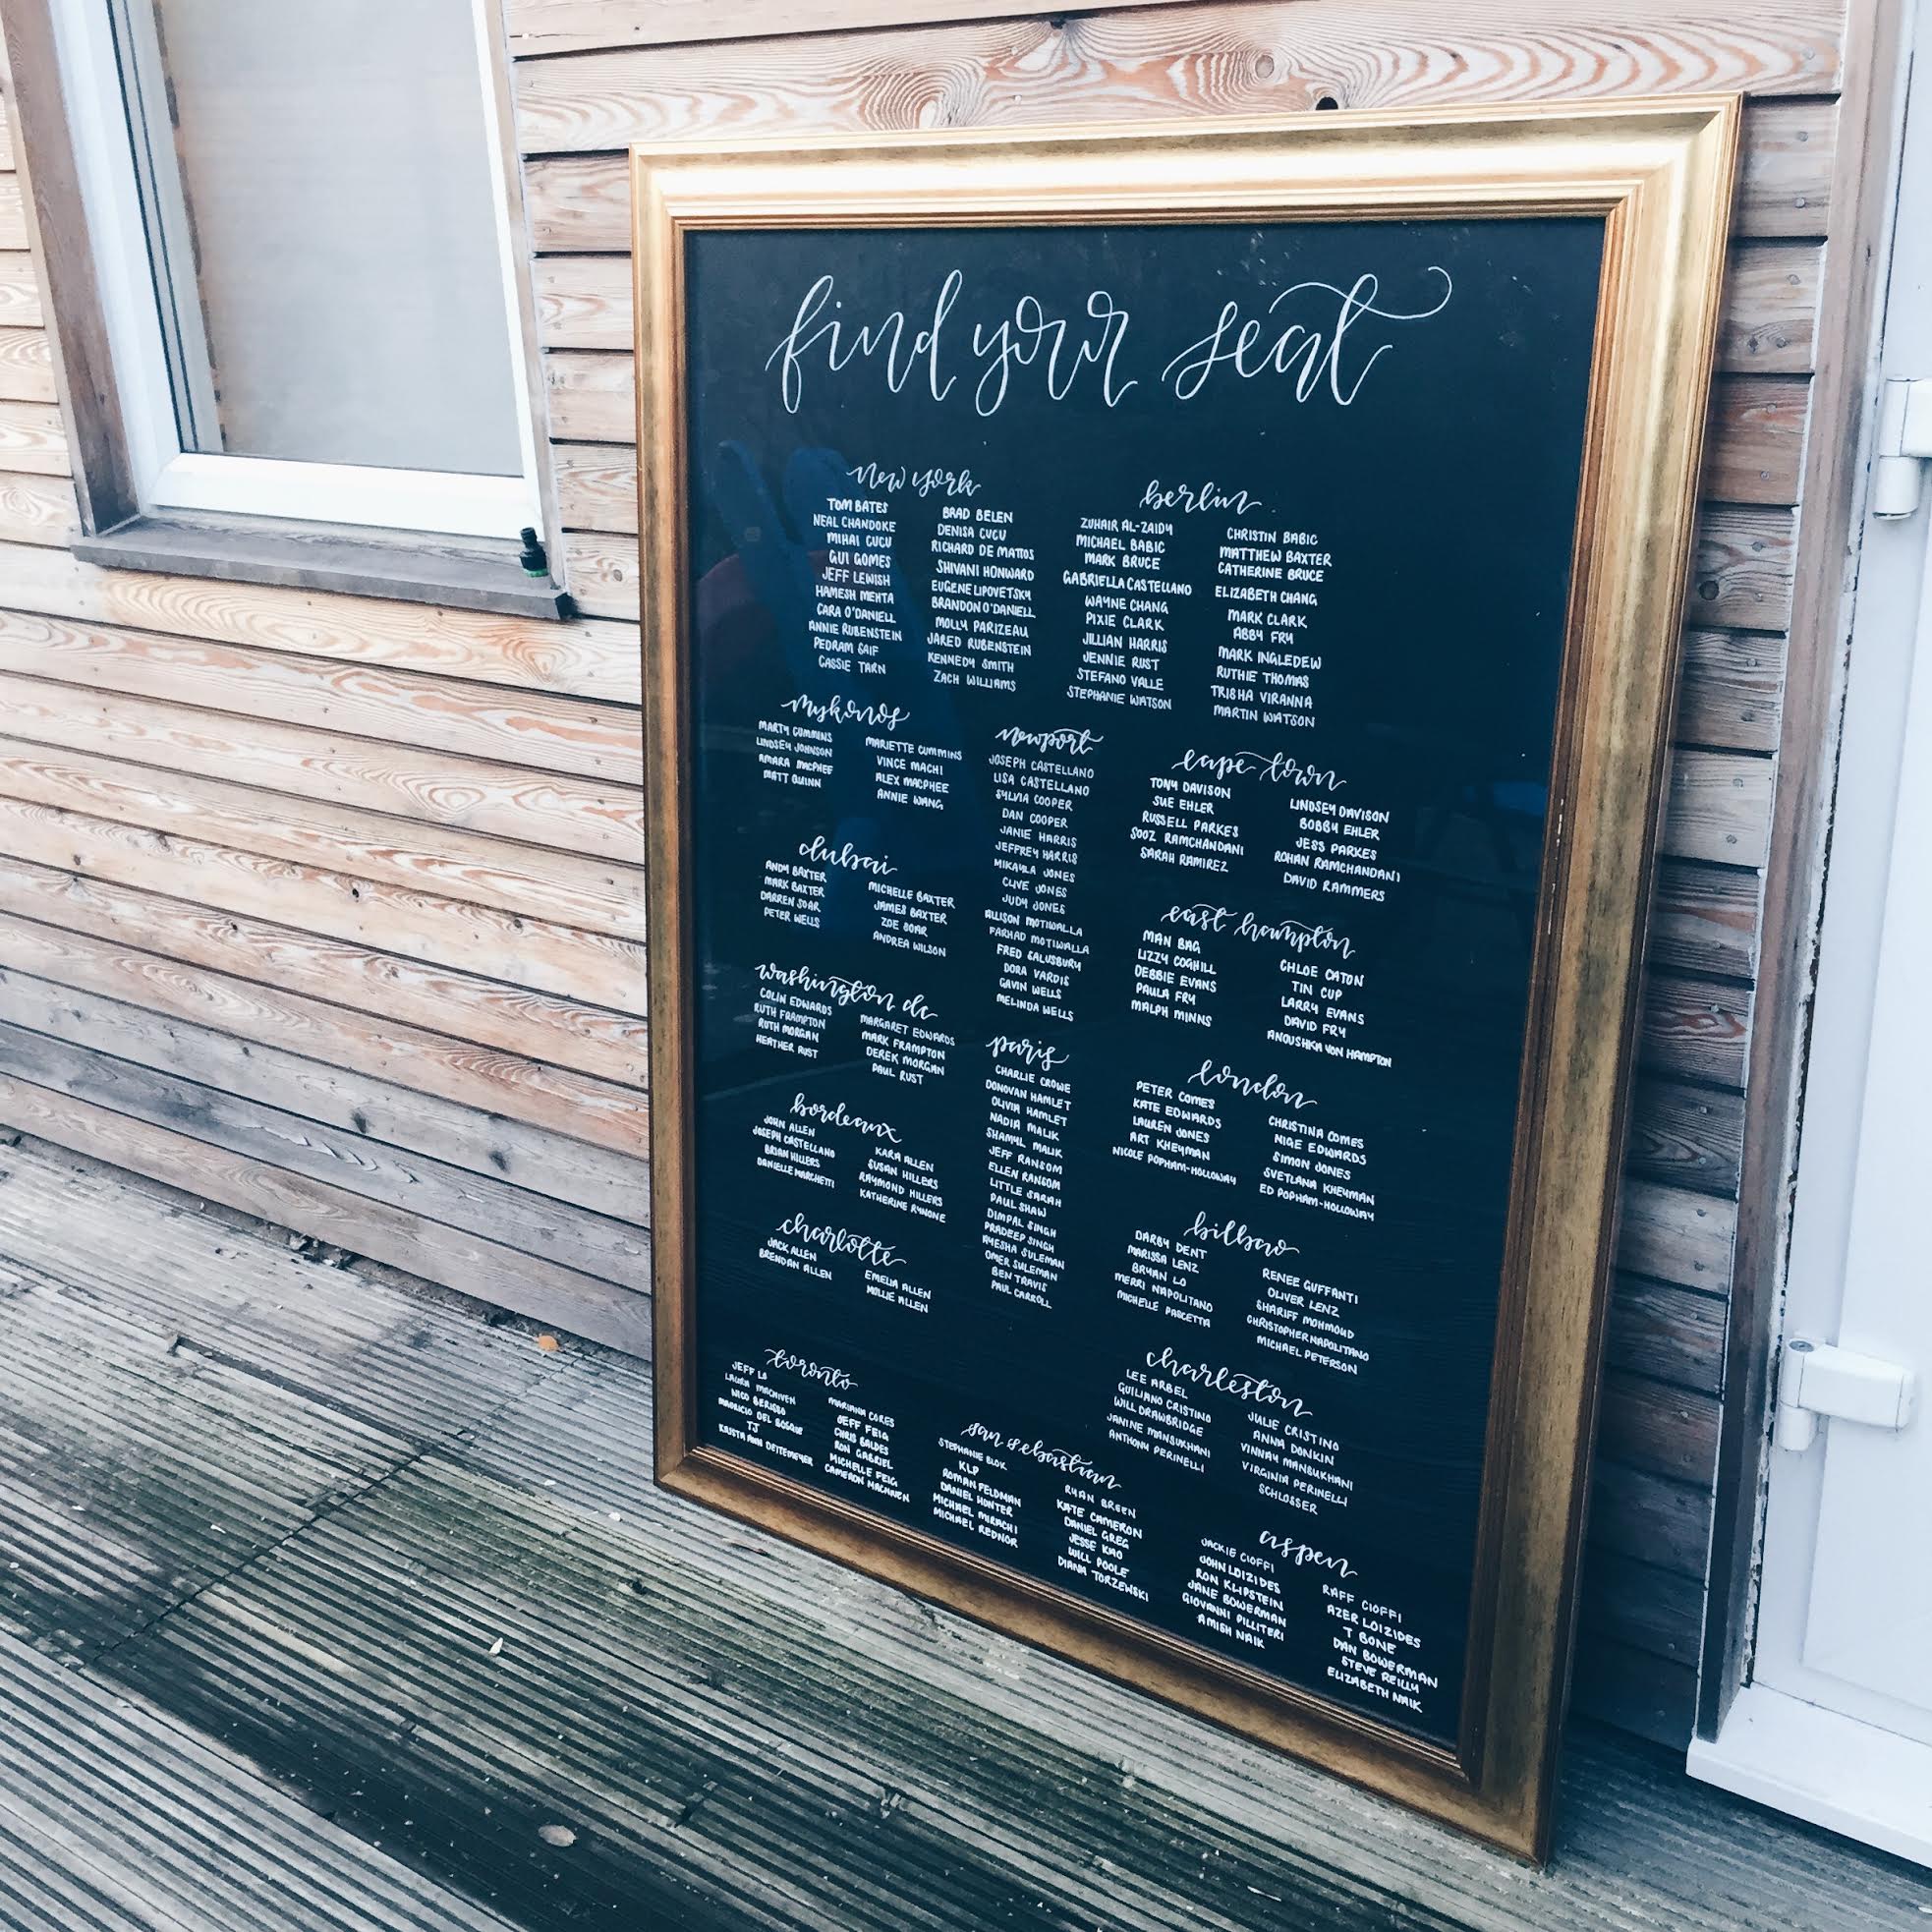 find your seat
new york
TOM BATES
NEAL CHANDOKE
MIHAI CUCU
GUI GOMES
JEFF LEWISH
HAMESH MEHTA
CARA O'DANIELL
ANNIE RUBENSTEIN
PEDRAM SAIF
CASSIE TARN
BRAD BELEN
DENISA CUCU
RICHARD DE MATTOS
SHIVANI HONWARD
EUGENE LIPOVETSKY
BRANDON O'DANIELL
MOLLY PARIZEAU
JARED RUBENSTEIN
KENNEDY SMITH
ZACH WILLIAMS
berlin
ZUHAIR AL-ZAIDY
MICHAEL BABIC
MARK BRUCE
GABRIELLA CASTELLANO
WAYNE CHANG
PIXIE CLARK
JILLIAN HARRIS
JENNIE RUST
STEFANO VALLE
STEPHANIE WATSON
CHRISTIN BABIC
MATTHEW BAXTER
CATHERINE BRUCE
ELIZABETH CHANG
MARK CLARK
ABBY FRY
MARK INGLEDEW
RUTHIE THOMAS
TRISHA VIRANNA
MARTIN WATSON
mykonos
MARTY CUMMINS
LINDSEY JOHNSON
AMARA MACPHEE
MATT QUINN
MARIETTE CUMMINS
VINCE MACHI
ALEX MACPHEE
ANNIE WANG
newport
JOSEPH CASTELLANO
LISA CASTELLANO
SYLVIA COOPER
DAN COOPER
JANIE HARRIS
JEFFREY HARRIS
MIKAYLA JONES
CLIVE JONES
JUDY JONES
ALLISON MOTIWALLA
FARHAD MOTIWALLA
FRED SALUSBURY
DORA VARDIS
GAVIN WELLS
MELINDA WELLS
cape town
TONY DAVISON
SUE EHLER
RUSSELL PARKES
SOOZ RAMCHANDANI
SARAH RAMIREZ
LINDSEY DAVISON
BOBBY EHLER
JESS PARKES
ROHAN RAMCHANDANI
DAVID RAMMERS
dubai
ANDY BAXTER
MARK BAXTER
DARREN SOAR
PETER WELLS
MICHELLE BAXTER
JAMES BAXTER
ZOE SOAR
ANDREA WILSON
east hampton
MAN BAG
LIZZY COGHILL
DEBBIE EVANS
PAULA FRY
MALPH MINNS
CHLOE CATON
TIN CUP
LARRY EVANS
DAVID FRY
ANOUSHKA VON HAMPTON
washington dc
COLIN EDWARDS
RUTH FRAMPTON
RUTH MORGAN
HEATHER RUST
MARGARET EDWARDS
MARK FRAMPTON
DEREK MORGAN
PAUL RUST
paris
CHARLIE CROWE
DONOVAN HAMLET
OLIVIA HAMLET
NADIA MALIK
SHAMYL MALIK
JEFF RANSOM
ELLEN RANSOM
LITTLE SARAH
PAUL SHAW
DIMPAL SINGH
PRADEEP SINGH
AYESHA SULEMAN
OMER SULEMAN
BEN TRAVIS
PAUL CARROLL
london
PETER COMES
KATE EDWARDS
LAUREN JONES
ART KHEYMAN
NICOLE POPHAM-HOLLOWAY
CHRISTINA COMES
NIGE EDWARDS
SIMON JONES
SVETLANA KHEYMAN
ED POPHAM-HOLLOWAY
bordeaux
JOHN ALLEN
JOSEPH CASTELLANO
BRIAN HILLERS
DANIELLE MARCHETTI
KARA ALLEN
SUSAN HILLERS
RAYMOND HILLERS
KATHERINE RYNONE
charlotte
JACK ALLEN
BRENDAN ALLEN
EMELIA ALLEN
MOLLIE ALLEN
bilbao
DARBY DENT
MARISSA LENZ
BRYAN LO
MERRI NAPOLITANO
MICHELLE PASCETTA
RENEE GUFFANTI
OLIVER LENZ
SHARIFF MOHMOUD
CHRISTOPHER NAPOLITANO
MICHAEL PETERSON
charleston
LEE ARBEL
GUILIANO CRISTINO
WILL DRAWBRIDGE
JANINE MANSUKHANI
ANTHONY PERINELLI
JULIE CRISTINO
ANNA DONKIN
VINNAY MANSUKHANI
VIRGINIA PERINELLI
SCHLOSSER
toronto
JEFF LO
LAURA MACNIVEN
NICO BERISSO
MAURICIO DEL BOSQUE
TJ
KRISTA ANN DEITEMEYER
MARIANA CORES
JEFF FEIG
CHRIS BALDES
RON GABRIEL
MICHELLE FEIG
CAMERON MACNIVEN
san sebastian
STEPHANIE BLOK
KLP
ROMAN FELDMAN
DANIEL HUNTER
MICHAEL MIRACHI
MICHAEL REDNOR
RYAN BREEN
KATE CAMERON
DANIEL GREG
JESSE KAO
WILL POOLE
DIANA TORZEWSKI
aspen
JACKIE CIOFFI
JOHN LOIZIDES
RON KLIPSTEIN
JANE BOWERMAN
GIOVANNI PILLITERI
AMISH NAIK
RAFF CIOFFI
AZER LOIZIDES
T BONE
DAN BOWERMAN
STEVE REILLY
ELIZABETH NAIK